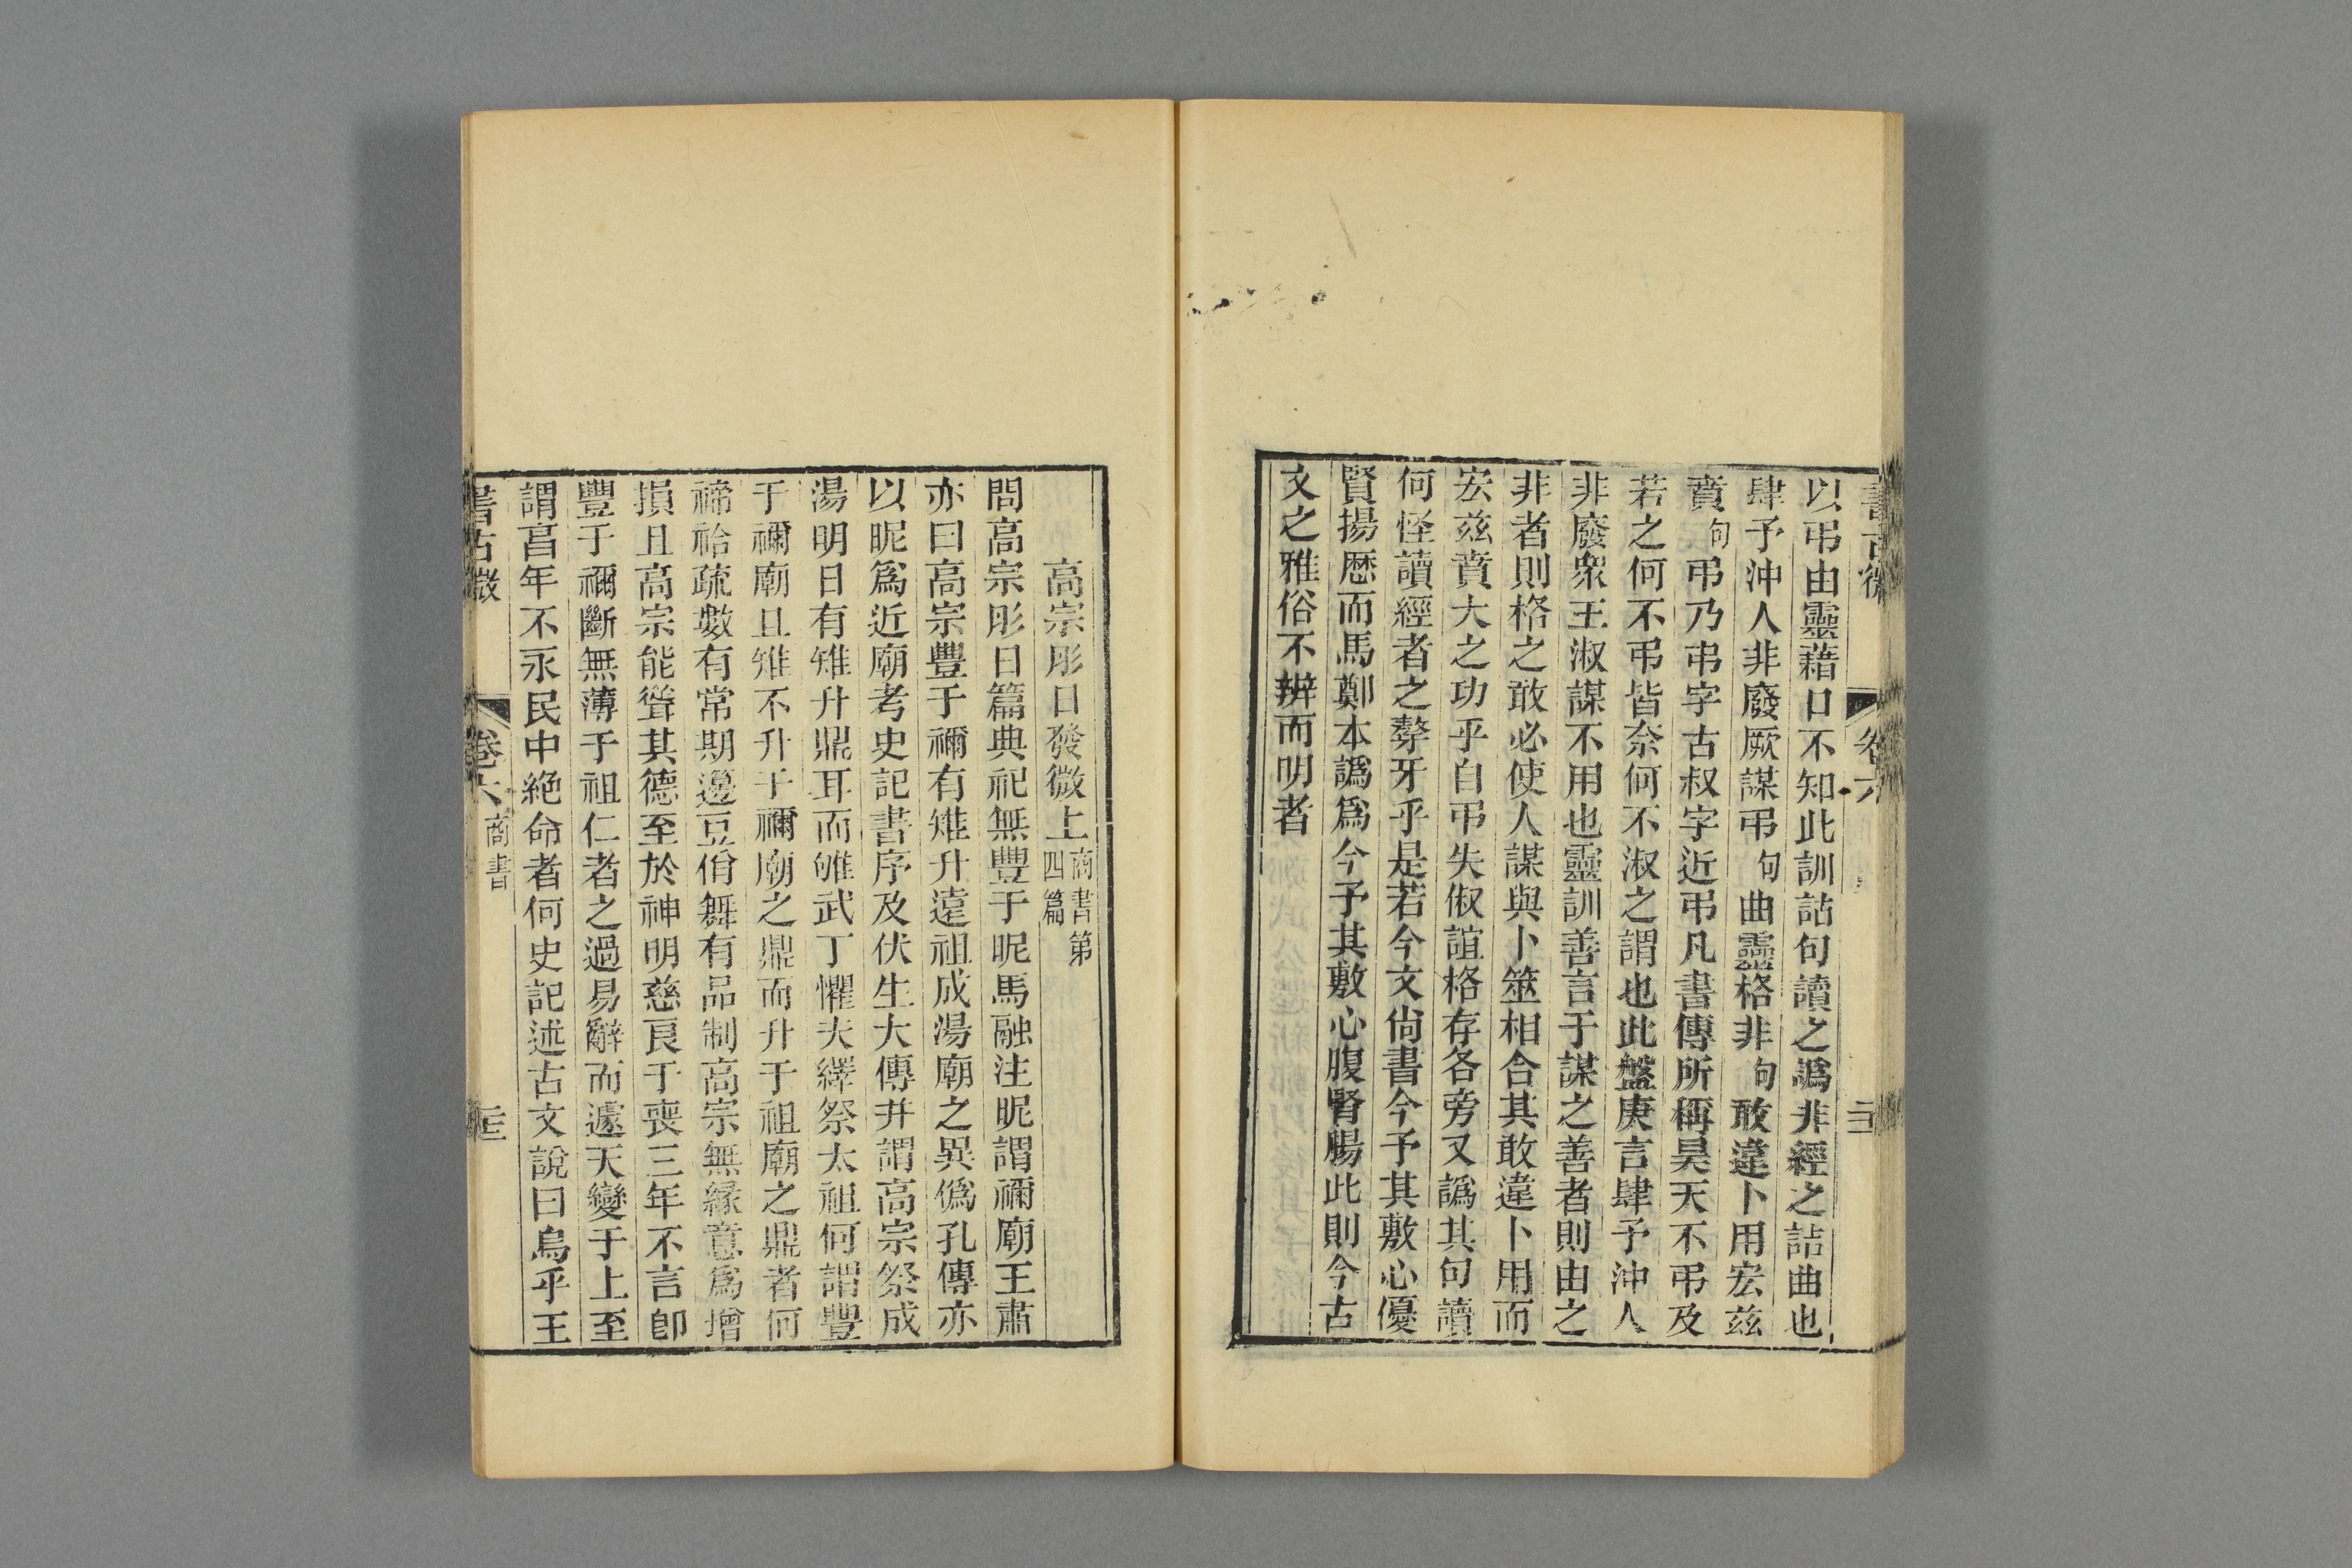 書古微 卷六
以弔由靈藉口不知此訓詁句讀之譌非經之詰曲也
肆予沖人非廢厥謀弔句曲靈格非句敢違卜用宏茲
賁句弔乃弔字古叔字近弔凡書傳所稱昊天不弔及
若之何不弔皆奈何不淑之謂也此盤庚言肆予沖人
非廢衆王淑謀不用也靈訓善言于謀之善者則由之
非者則格之敢必使人謀與卜筮相合其敢違卜用而
宏茲賁大之功乎自弔失俶誼格存各旁又譌其句讀
何怪讀經者之聱牙乎是若今文尙書今予其敷心優
賢揚歴而馬鄭本譌爲今予其敷心腹腎腸此則今古
文之雅俗不辨而明者
高宗肜日發微上商書第四篇
問高宗肜日篇典祀無豐于昵馬融注昵謂禰廟王肅
亦曰高宗豐于禰有雉升遠祖成湯廟之異僞孔傳亦
以昵爲近廟考史記書序及伏生大傳并謂高宗祭成
湯明日有雉升鼎耳而雊武丁懼夫繹祭太祖何謂豐
于禰廟且雉不升于禰廟之鼎而升于祖廟之鼎者何
禘祫疏數有常期籩豆佾舞有品制高宗無緣意爲增
損且高宗能聳其德至於神明慈良于喪三年不言卽
豐于禰斷無薄于祖仁者之過易辭而遽天變于上至
謂胷年不永民中絶命者何史記述古文說曰烏乎王
書古微 卷六 商書